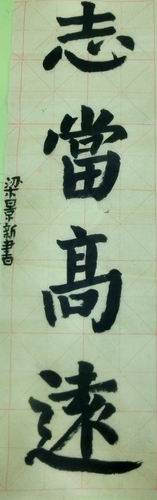 志當高遠
梁景新書